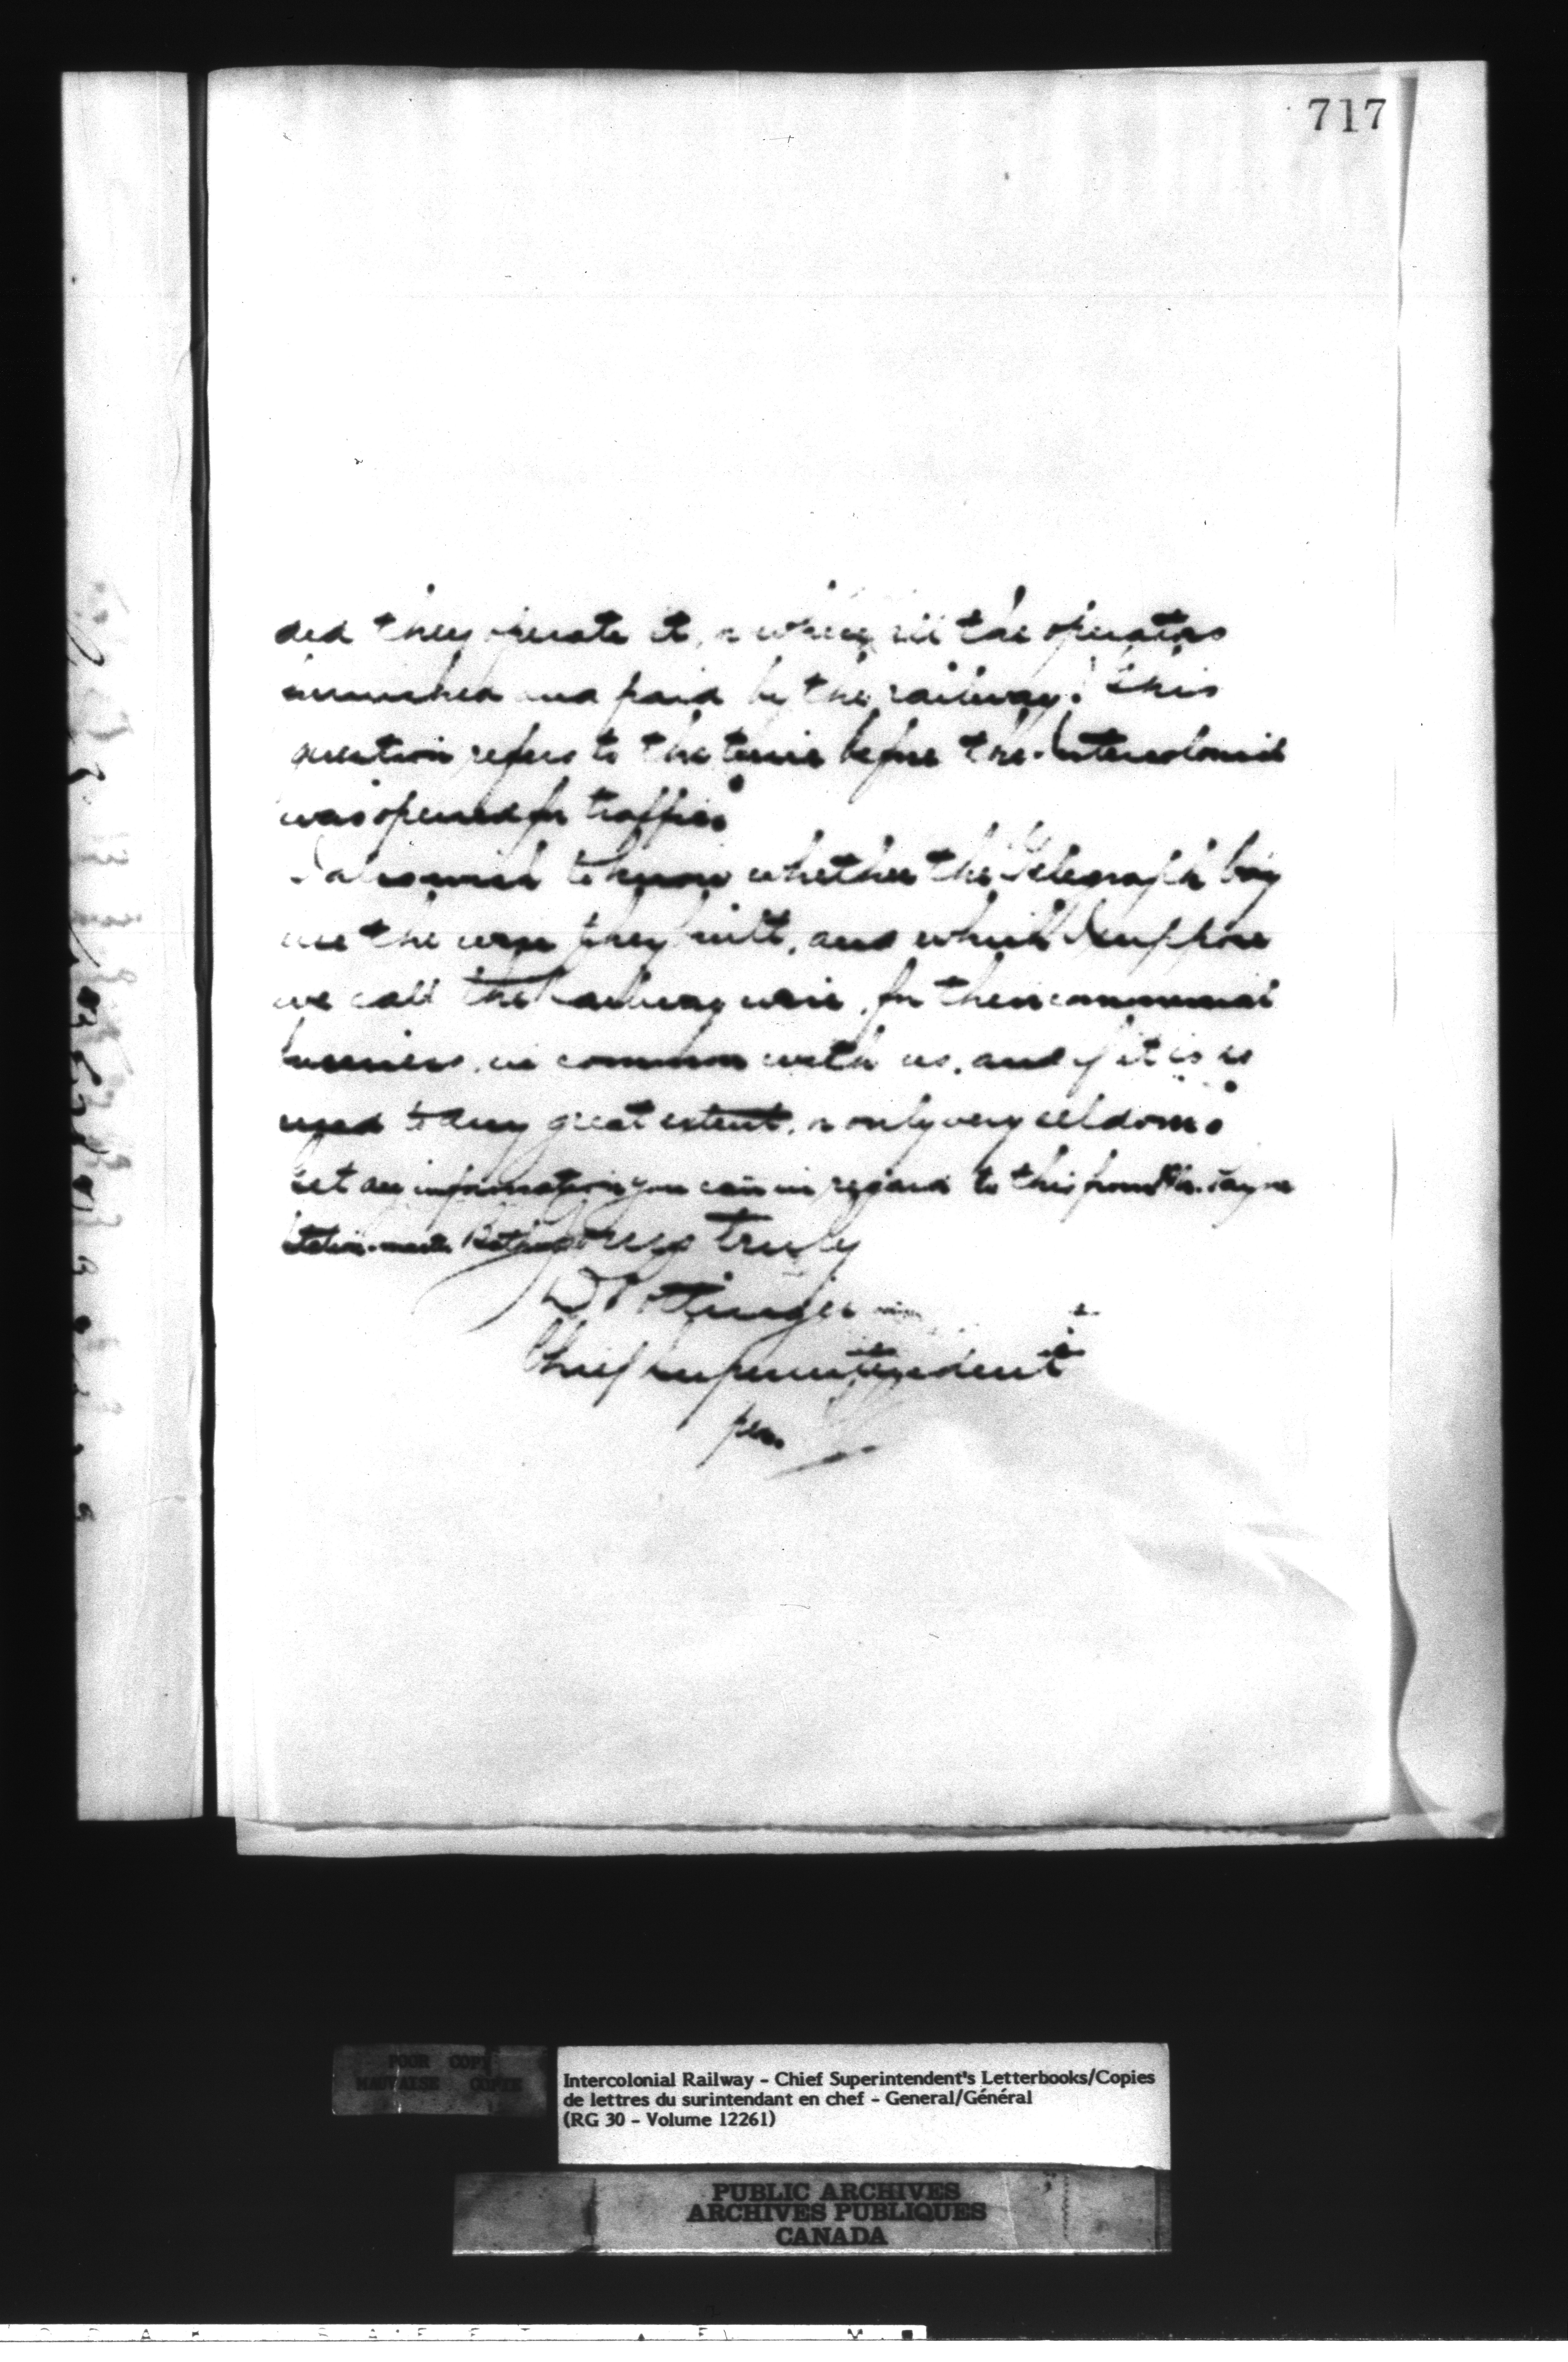 717
did they operate it, or were all the operators
furnished and paid by the railway? This
question refers to the time before the Intercolonial
was opened for traffic.
I also wish to know whether the Telegraph Coy
use the wire they built, and which I suppose
we call the Railway wire, for their commercial
business, in common with us, and if it is so
used to any great extent, or only very seldom.
Get any information you can in regard to this from Mr.
Station-master
Yours truly
D Pottinger
Chief Superintendent
per
POOR COPY
MAUVAISE COPIE
Intercolonial Railway - Chief Superintendent's Letterbooks/Copies
de lettres du surintendant en chef - General/Général
(RG 30 - Volume 12261)
PUBLIC ARCHIVES
ARCHIVES PUBLIQUES
CANADA